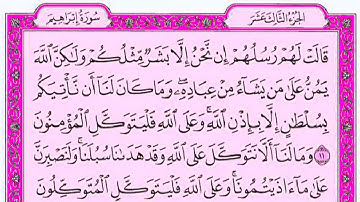 سُورَةُ إِبْرَاهِيمَ الجُزْءُ الثَّالِثَ عَشَرَ
قَالَتْ لَهُمْ رُسُلُهُمْ إِن نَّحْنُ إِلَّا بَشَرٌ مِّثْلُكُمْ وَلَٰكِنَّ ٱللَّهَ
يَمُنُّ عَلَىٰ مَن يَشَآءُ مِنْ عِبَادِهِۦ ۖ وَمَا كَانَ لَنَآ أَن نَّأْتِيَكُم
بِسُلْطَٰنٍ إِلَّا بِإِذْنِ ٱللَّهِ ۚ وَعَلَى ٱللَّهِ فَلْيَتَوَكَّلِ ٱلْمُؤْمِنُونَ
١١ وَمَا لَنَآ أَلَّا نَتَوَكَّلَ عَلَى ٱللَّهِ وَقَدْ هَدَىٰنَا سُبُلَنَا ۚ وَلَنَصْبِرَنَّ
عَلَىٰ مَآ ءَاذَيْتُمُونَا ۚ وَعَلَى ٱللَّهِ فَلْيَتَوَكَّلِ ٱلْمُتَوَكِّلُونَ